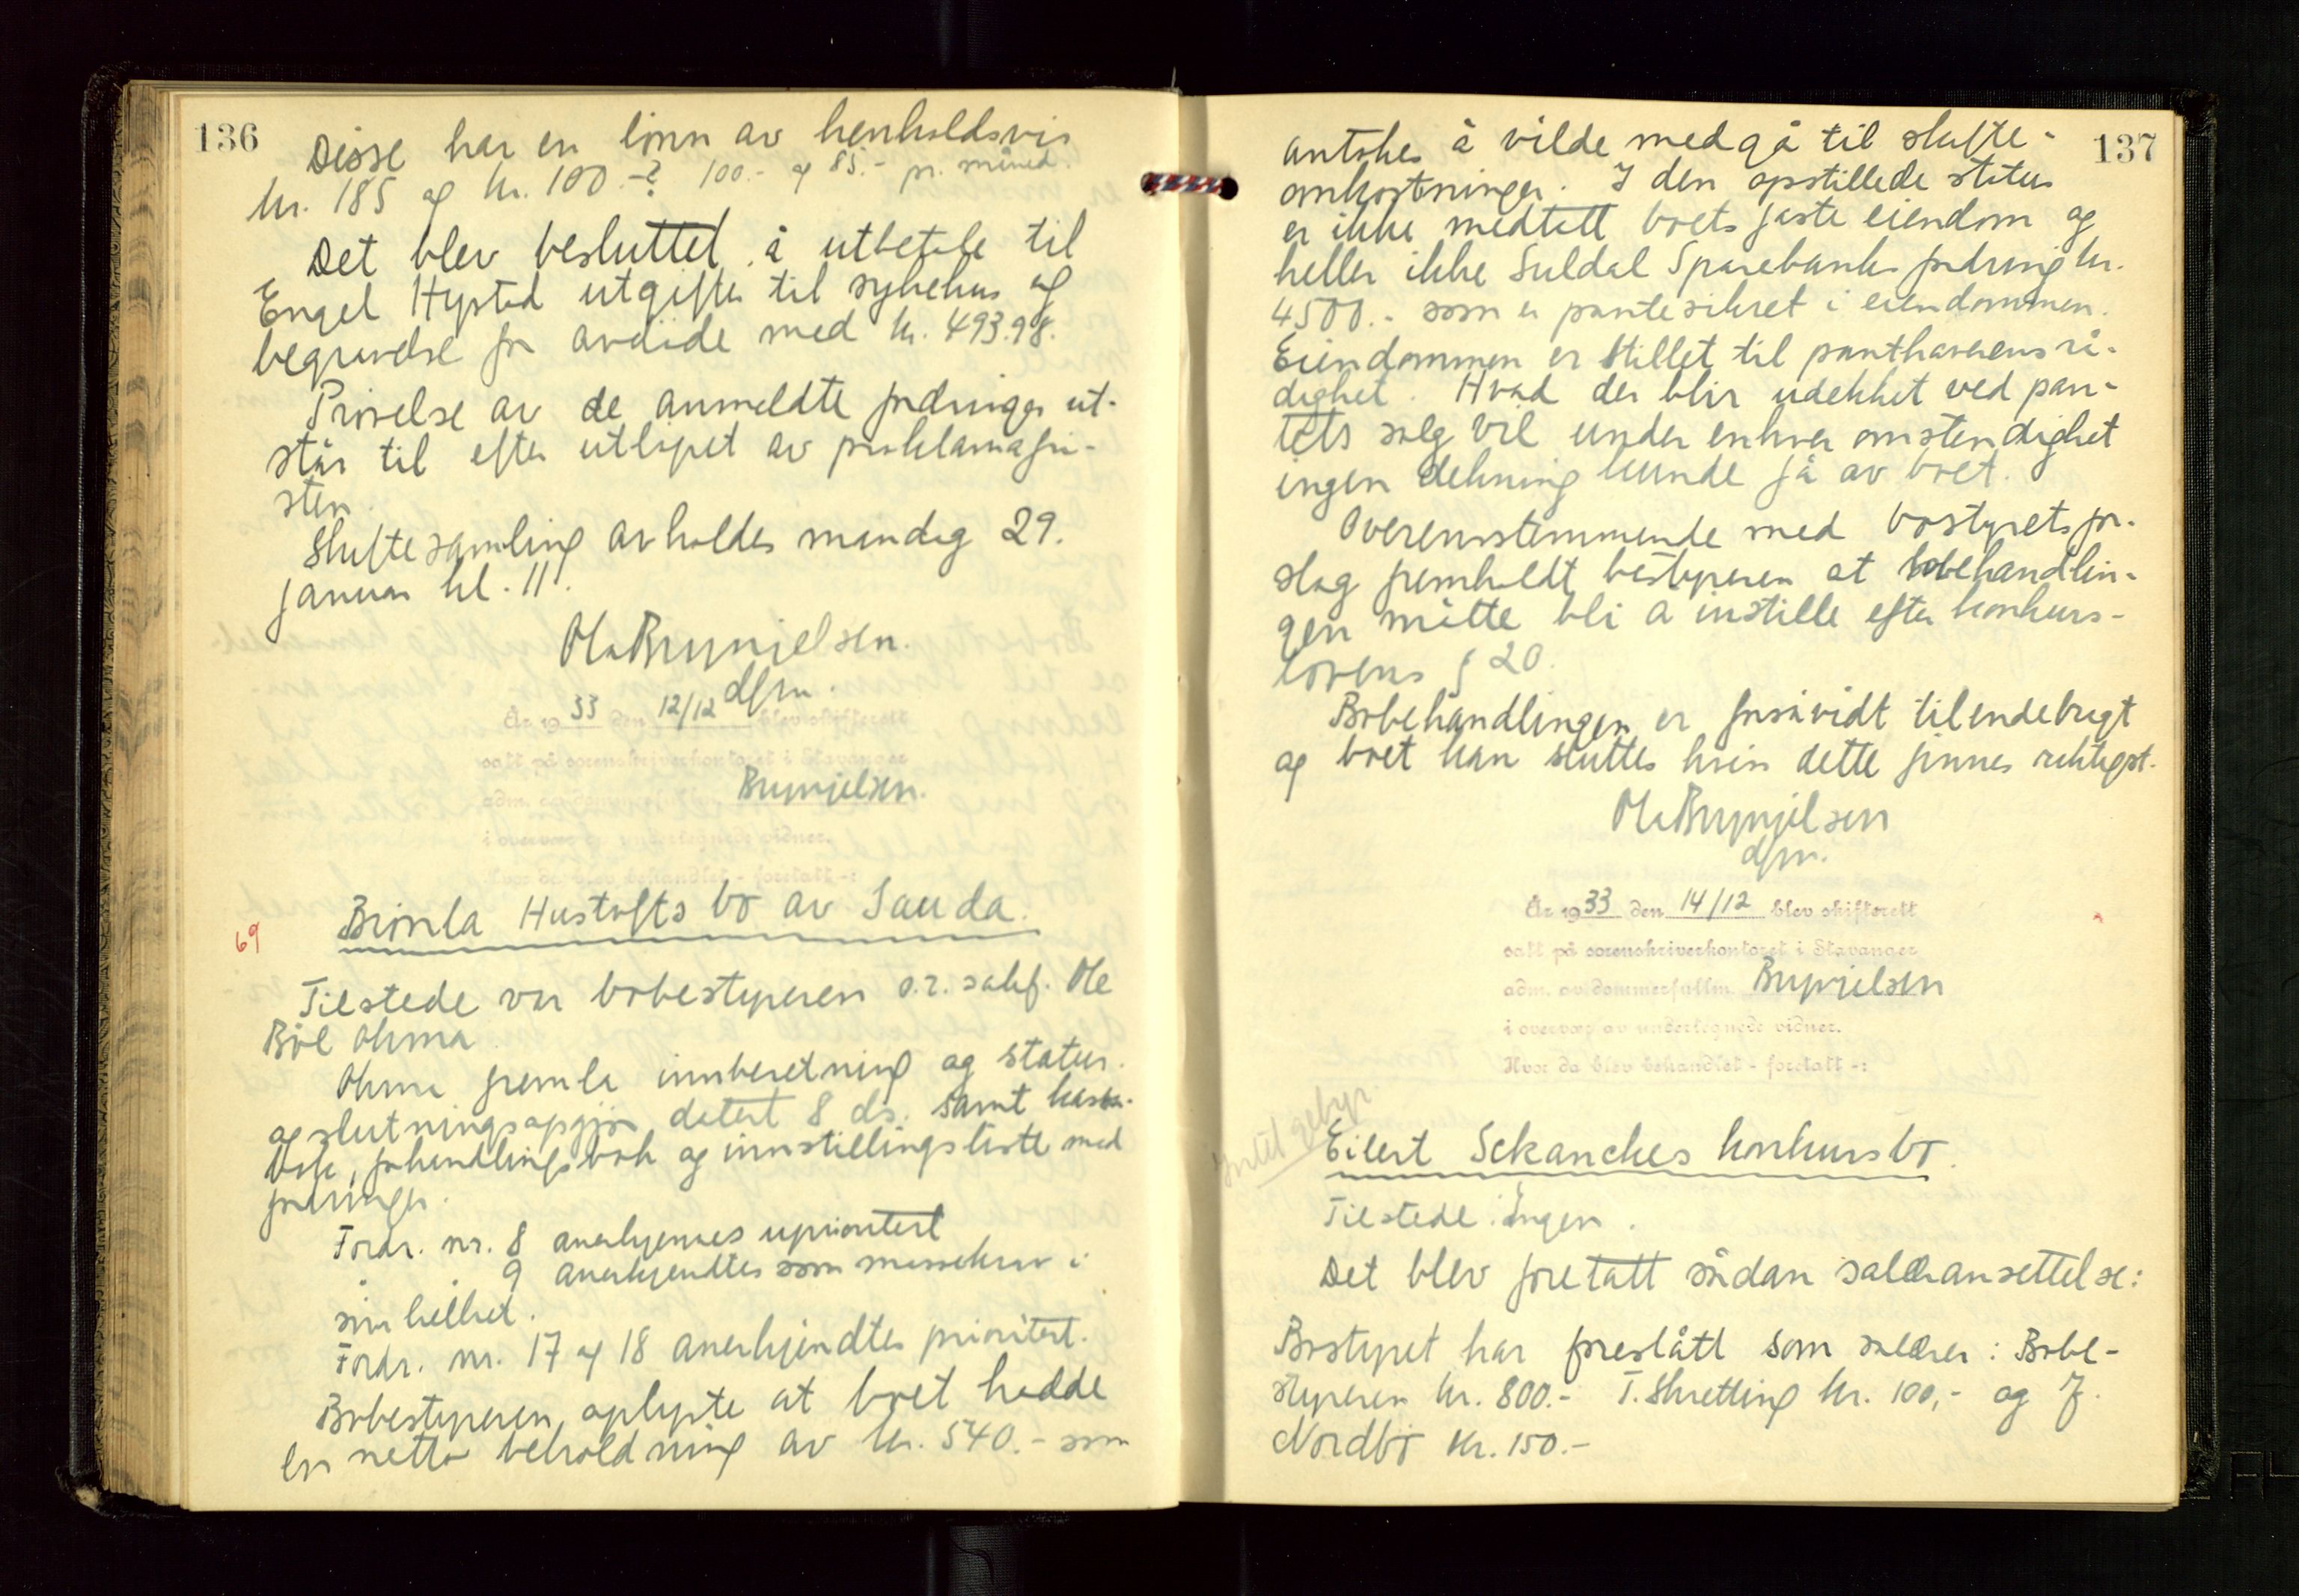 136
Disse har en lönn av henholdsvis
kr. 185 og kr. 100.-? 100.- og 85.- pr. måned.
Det blev besluttet å utbetale til
Engel Hystad utgifter til sykehus og
begravelse for avdöde med kr. 493.98.
Prövelse av de anmeldte fordringer ut-
står til efter utlöpet av proklamafri-
sten.
Skiftesamling avholdes mandag 29.
januar kl. 11.
Ola Brynjelsen.
dfm.
År 1933 den 12/12 blev skifterett
satt på sorenskriverkontoret i Stavanger
adm. av dommerfullm. Brynjelsen.
i overvær av undertegnede vidner.
Hvor da blev behandlet - foretatt -:
69
Hustofts bo av Sauda.
Tilstede var bobestyreren o.r. sakf. Ole
Böe Ohma
Ohma fremla innberetning og status.
og slutningsopgjör datert 8 ds. samt kasse-
bok, forhandlingsbok og innstillingsliste med
fordringer.
Fordr. nr. 8 anerkjennes uprioritert
" " 9 anerkjendtes som massekrav i
sin helhet.
Fordr. nr. 17 og 18 anerkjendtes prioritert.
Bobestyreren oplyste at boet hadde
en netto beholdning av kr. 540.- som
137
antokes å vilde medgå til skifte-
omkostninger. I den opstillede status
er ikke medtatt boets faste eiendom og
heller ikke Suldal Sparebanks fordring kr.
4500.- som er pantesikret i eiendommen.
Eiendommen er stillet til panthaverens rå-
dighet. Hvad der blir udekket ved pan-
tets salg vil under enhver omstendighet
ingen dekning kunde få av boet.
Overensstemmende med bostyrets for-
slag fremholdt bestyreren at bobehandlin-
gen måtte bli å instille efter konkurs-
lovens § 20.
Bobehandlingen er forsåvidt tilendebragt
og boet kan sluttes hvis dette finnes riktigst.
Ola Brynjelsen
dfm.
År 1933 den 14/12 blev skifterett
satt på sorenskriverkontoret i Stavanger
adm. av dommerfullm. Brynjelsen
i overvær av undertegnede vidner.
Hvor da blev behandlet - foretatt -:
Intet gebyr
Eilert Schanches konkursbo.
Tilstede: Ingen.
Det blev foretatt sådan salæransettelse:
Bostyret har foreslått som salærer: Bobe-
styreren kr. 800.- T. Skretting kr. 100,- og J.
Nordbö kr. 150.-